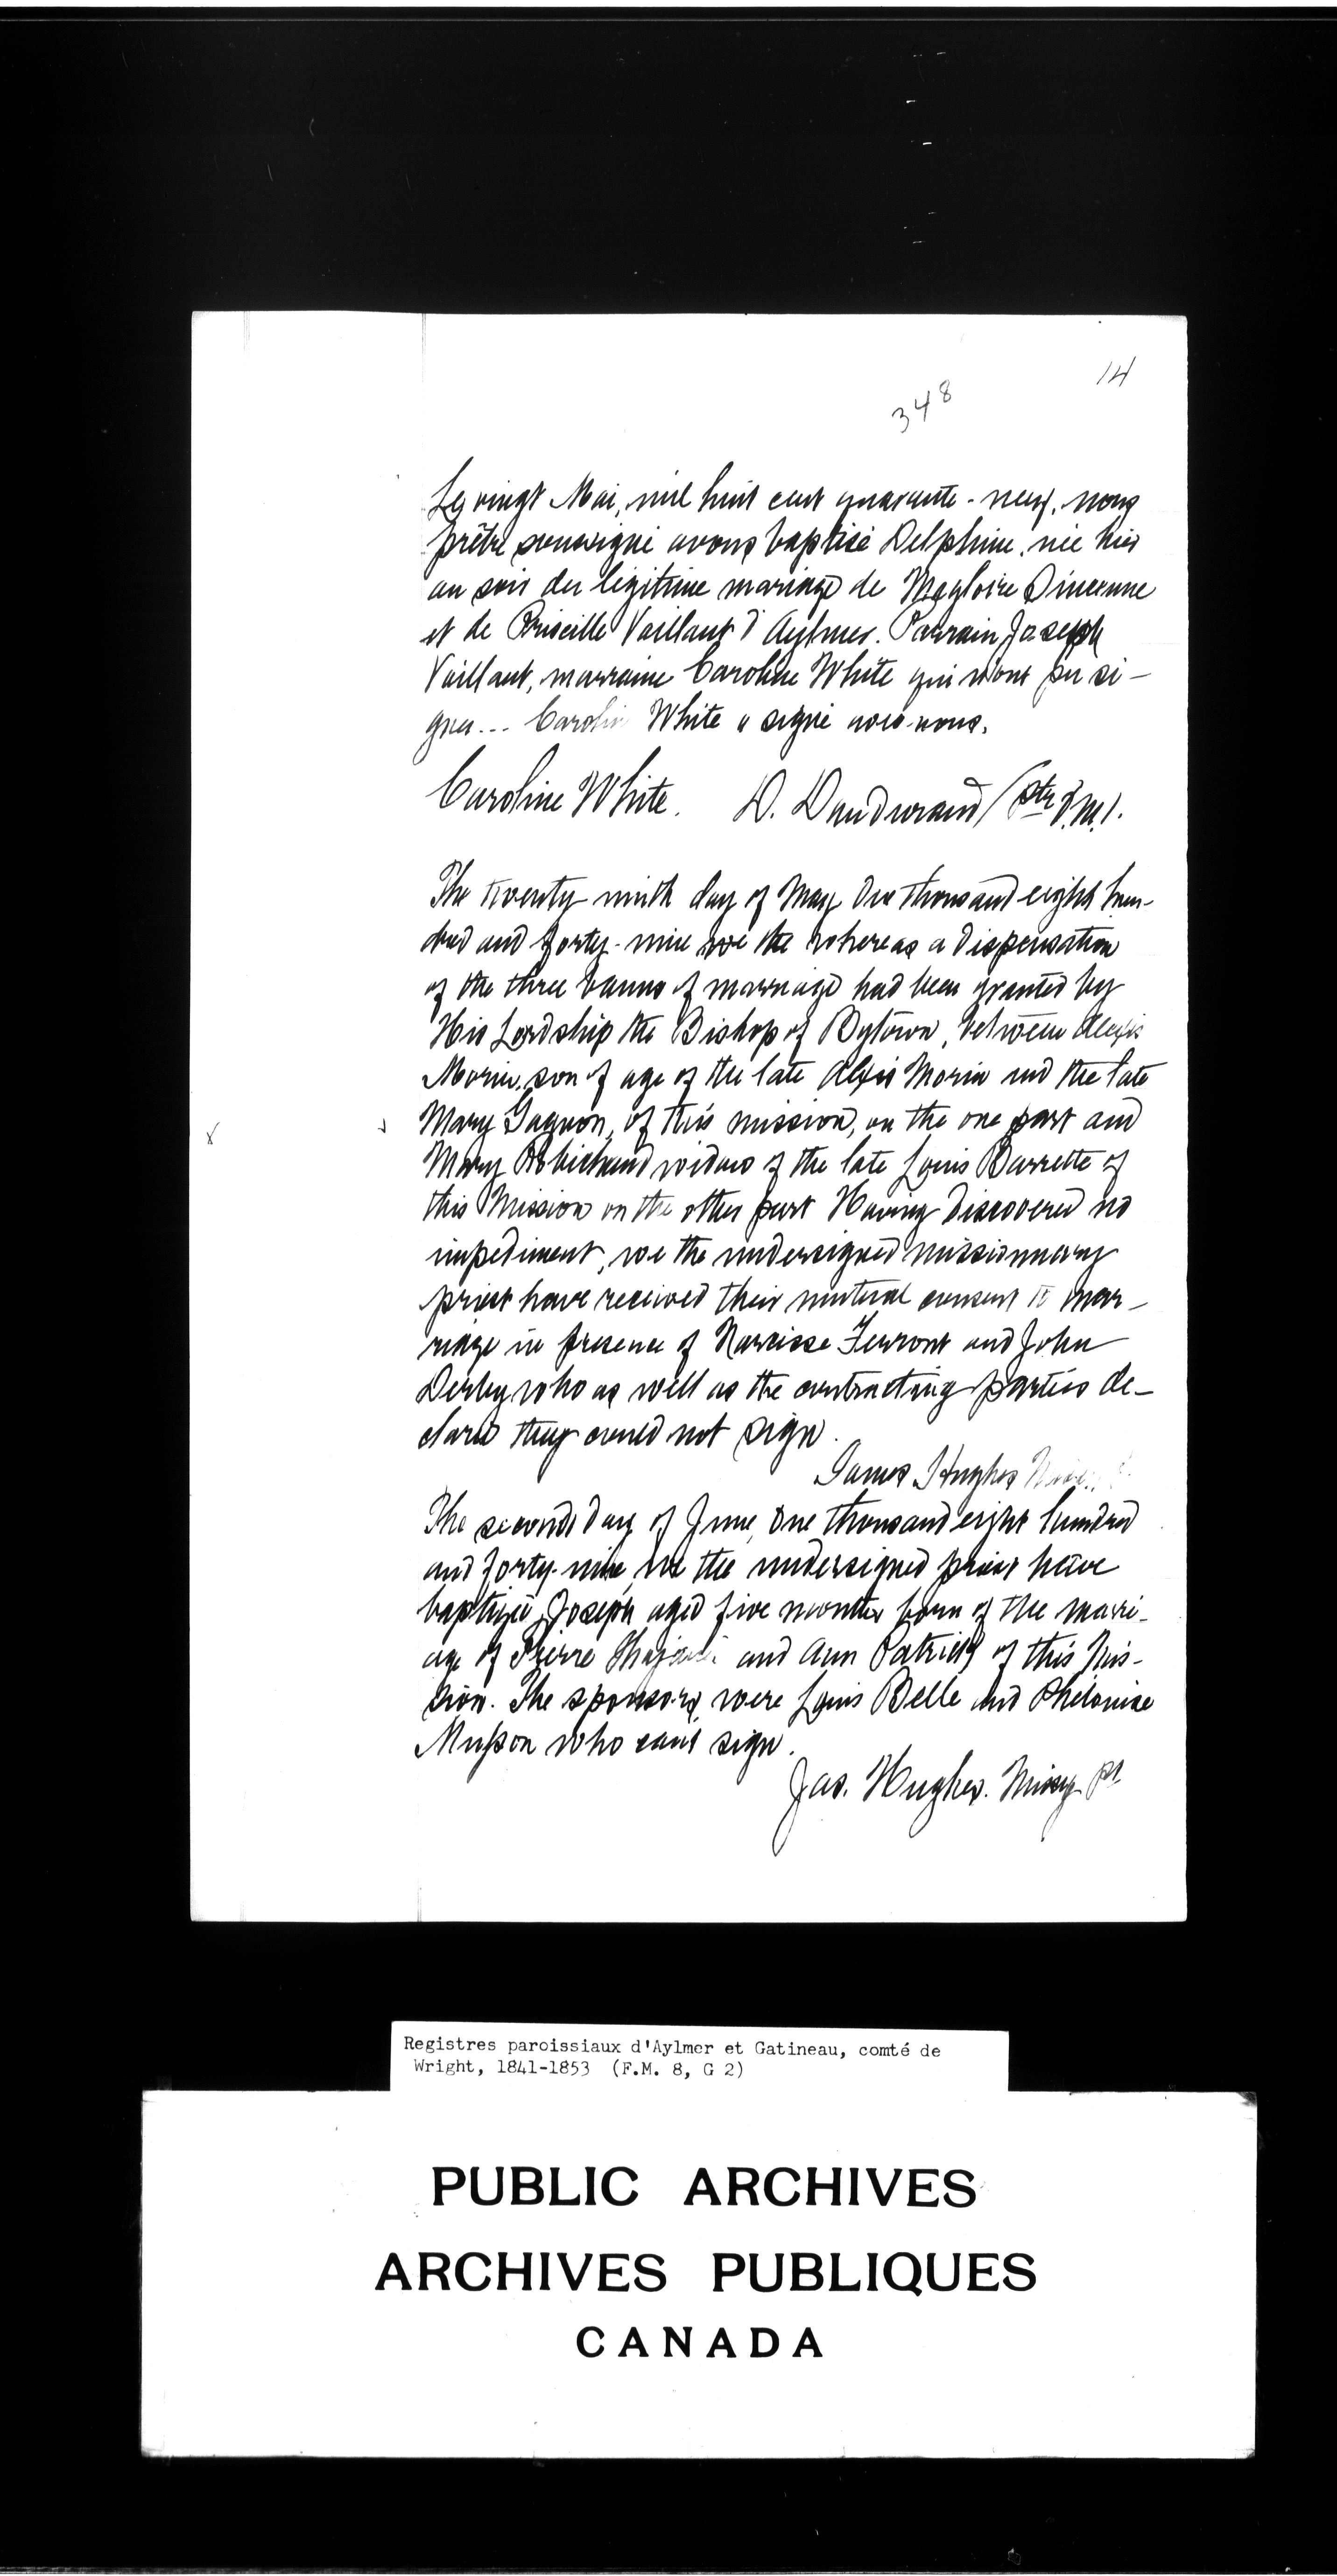 14
348
Le vingt Mai, mil huit cent quarante-neuf, nous
prêtre soussigné avons baptisé Delphine, née hier
au soir du légitime mariage de Magloire Dinenne
et de Priscille Vaillant d'Aylmer. Parrain Joseph
Vaillant, marraine Caroline White qui n'ont pu si-
gner... Caroline White a signé avec-nous.
Caroline White. D. Dandurand Ptr O.M.I.
The twenty ninth day of May One thousand eight hun-
dred and forty-nine we the whereas a dispensation
of the three banns of marriage had been granted by
His Lordship the Bishop of Bytown, between Alexis
Morin, son of age of the late Alexis Morin and the late
Mary Gagnon, of this mission, on the one part and
Mary Robichaud widow of the late Louis Barrette of
this Mission on the other part Having discovered no
impediment, we the undersigned missionnary
priest have received their mutual consent to mar-
riage in presence of Narcisse Ferront and John
Derby who as well as the contracting parties de-
clared they could not sign.
James Hughes
The second day of June, One thousand eight hundred
and forty-nine, we the undersigned priest have
baptized Joseph aged five months born of the marri-
age of Pierre and Ann Patrick of this Mis-
sion. The sponsors, were Louis Belle and Phelonise
Musson who cant sign.
Jas. Hughes. Missy pt
Registres paroissiaux d'Aylmer et Gatineau, comté de
Wright, 1841-1853 (F.M. 8, G 2)
PUBLIC ARCHIVES
ARCHIVES PUBLIQUES
CANADA